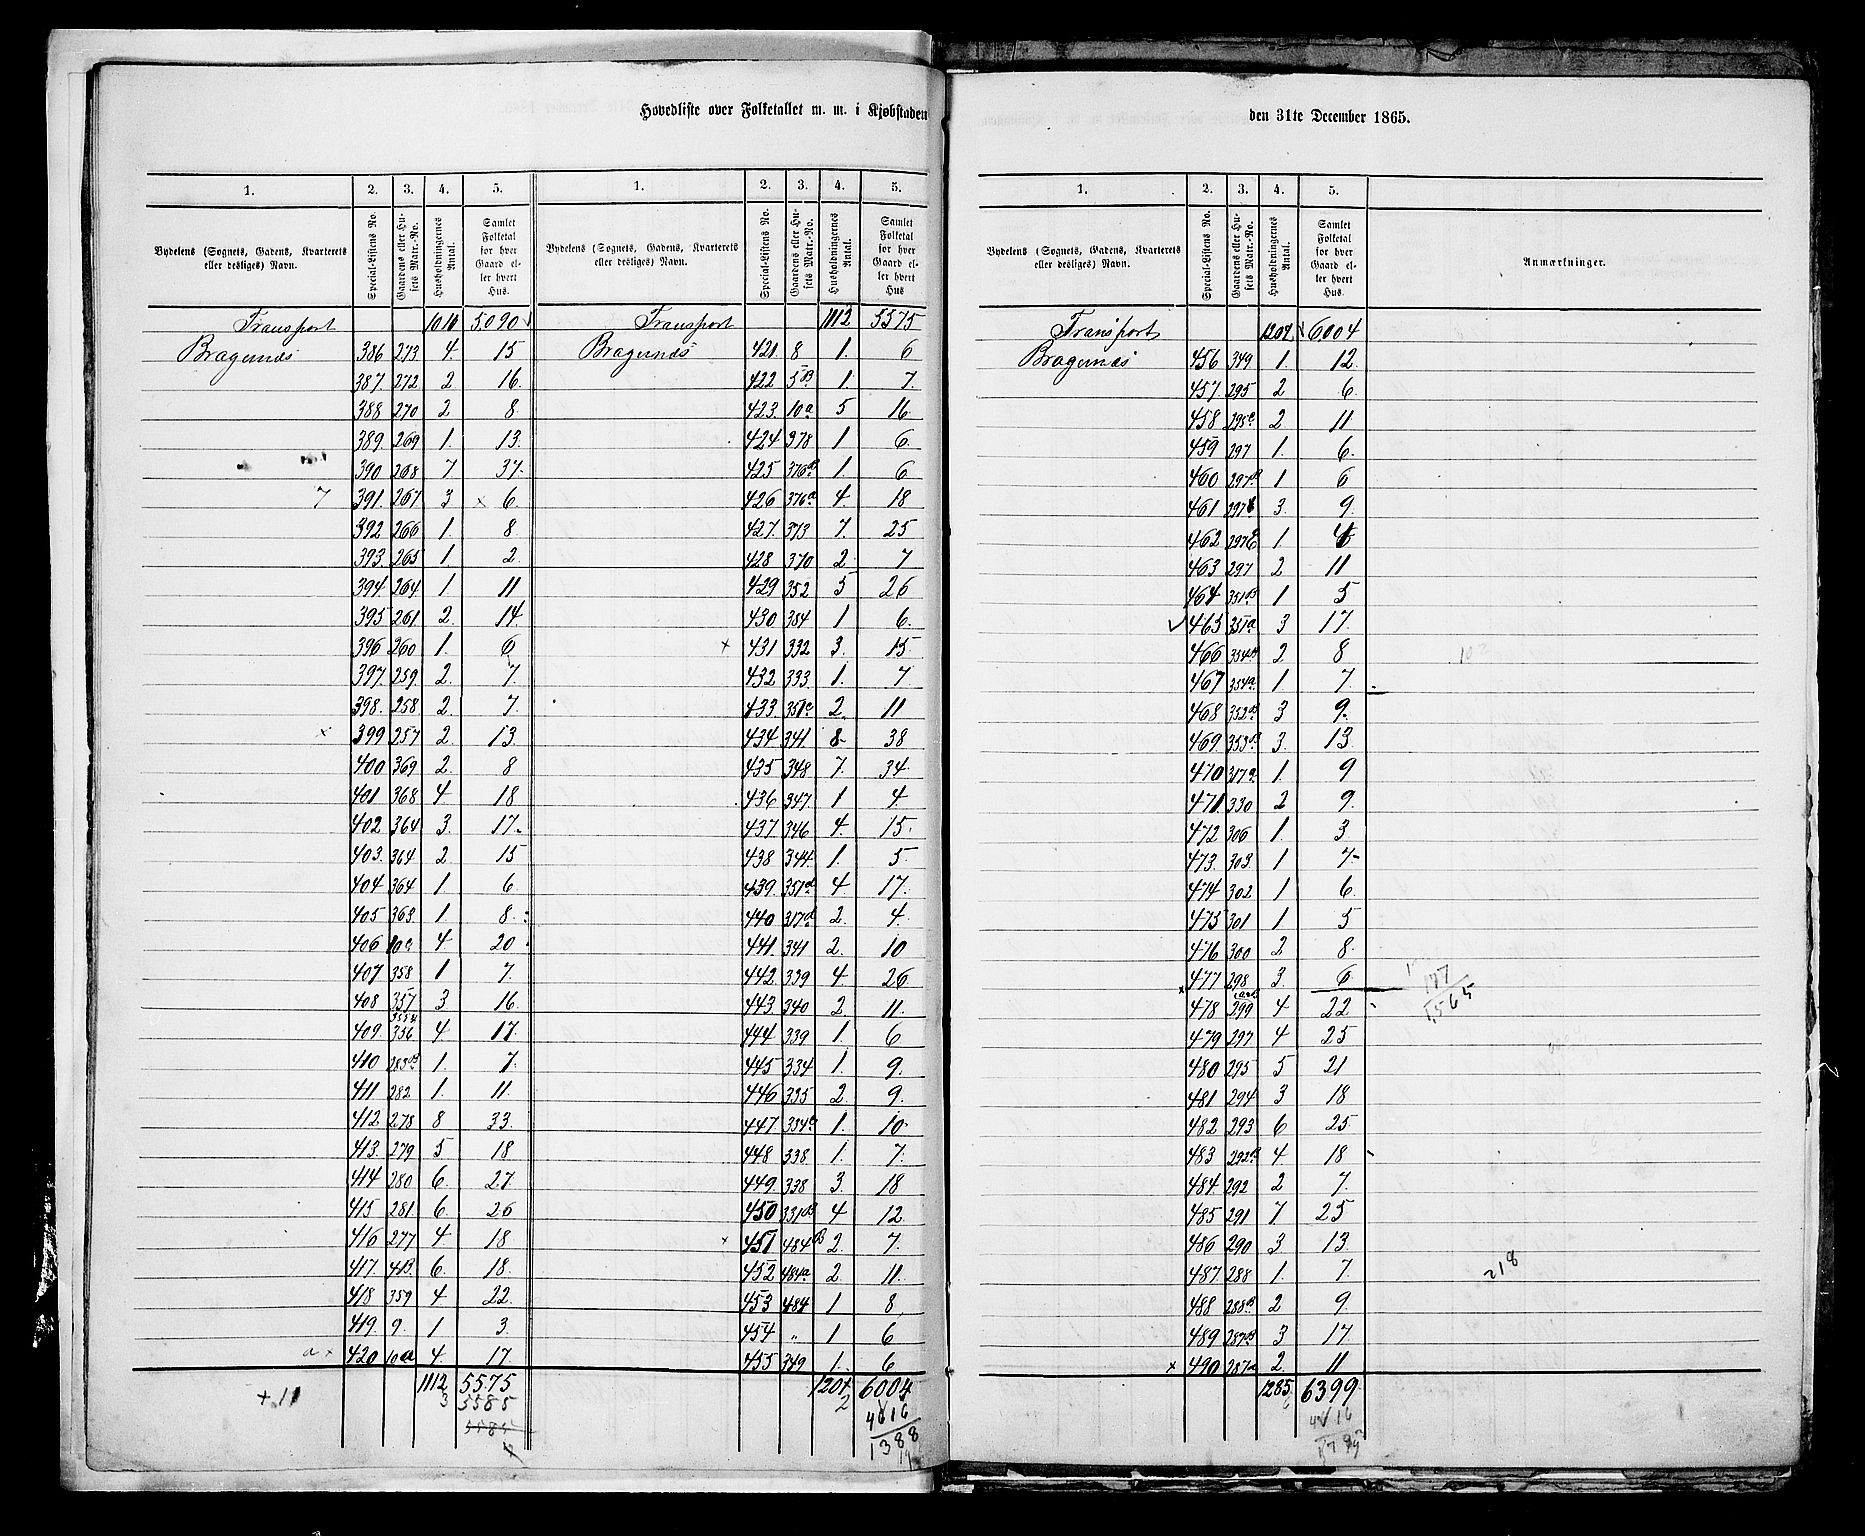 Hovedliste over Folketallet m. m. i Kjøbstaden
den 31te December 1865.
1. 2. 3. 4. 5. 1. 2. 3. 4. 5.
Bydelens (Sognets, Gadens, Kvarterets eller desliges) Navn. Special-Listens No. Gaardens eller Husets Matr.-No. Husholdningernes Antal. Samlet Folketal for hver Gaard eller hvert Hus. Bydelens (Sognets, Gadens, Kvarterets eller desliges) Navn. Special-Listens No. Gaardens eller Husets Matr.-No. Husholdningernes Antal. Samlet Folketal for hver Gaard eller hvert Hus
Transport 1010 5090 Transport 1112 5575
Bragernæs 386 273 4. 15 Bragernæs 421 8 1. 6
387. 272 2 16. 422 5B 1. 7.
388 270 2 8. 423. 10a 5 16
389. 269 1. 13. 424 378 1 6.
390 268 7. 37. 425 376B 1. 6
7 391. 267 3 x 6. 426 376a 4. 18
392 266 1. 8 427. 373 7. 25
393. 265 1. 2. 428 370 2 7
394. 264 1 11 429 352 5 26
395 261 2. 14. 430 384 1 6.
396 260 1. 6 x 431 332 3. 15.
397. 259. 2. 7. 432 333 1. 7
398. 258 2. 7. 433 351c 2. 11
x 399 257 2. 13. 434 341. 8 38
400 369 2. 8 435 348 7. 34
401 368 4 18 436 347. 1 4.
402 364 3. 17. 437 346 4. 15.
403. 364 2 15 438 344. 1. 5
404 364 1 6 439. 351d 4. 17.
405 363. 1. 8. 440 317d 2. 4.
406 10a 4. 20 441. 341 2. 10
407 358 1 7. 442. 339 4. 26
408 357 3 16. 443. 340 2 11.
409. 356 4. 17. 444 339 1. 6
410 283B 1. 7. 445 334 1. 9.
411 282 1. 11. 446 335 2. 9.
412 278 8 33. 447. 334a 1. 10
413. 279 5 18 448 338 1. 7.
414 280 6. 27. 449. 338 3. 18
415 281. 6. 26 450 331B 4 12
416 277 4 18 x 451 484B 2. 7.
417. 4B. 6. 18. 452 484a 2. 11.
418 359 4 22. 453 484 1 8
419. 9. 1 3. 454 „ 1 6
a x 420 10a 4. 17. 455 349 1. 6
1112 5575 1201 6004
+ 11 3 5585 2 4616
5585 1388
1. 2. 3. 4. 5.
Bydelens (Sognets, Gadens, Kvarterets eller desliges) Navn. Special-Listens No. Gaardens eller Husets Matr.-No. Husholdningernes Antal. Samlet Folketal for hver Gaard eller hvert Hus. Anmærkninger.
Transport 1201 6004
Bragernæs 456 349 1. 12.
457. 295 2 6.
458 295c 2 11
459 297 1. 6.
460 297B 1 6
461 297 3. 9.
462 297 1
463 297 2 11
464 351B 1 5
465 351a 3 17.
466 354B 2. 8
467 354a. 1 7.
468 352B 3 9.
469. 353B 3. 13.
470 317a. 1. 9
471. 330 2 9.
472 306 1. 3.
473. 303 1 7
474 302 1 6.
475 301 1 5
476 300 2 8.
x 477 298 3. 6
177
478 299 4 22
1,565
479 297 4 25
480 295 5 21
481 294 3 18
482 293 6 25
483 292B 4. 18
484. 292 2 7.
485 291 7 25
486 290 3 13.
487. 288 1. 7.
218
488 288B 2 9.
489. 287B 3 17.
x 490 287a 2. 11
1285 6399
4616